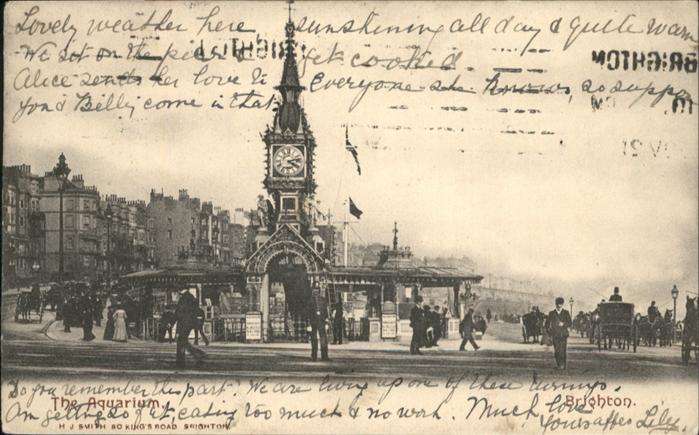 Lovely weather here sunshining all day & quite warm
We sat on the pier & get cooked.
BRIGHTON
BRIGHTON
Alice sends her love to everyone she knows, so suppose
you & Billy come in that
Do you remember this part? We are living up one of these turnings.
The Aquarium. Brighton.
Am getting so fat eating too much & no work. Much love
Yours affec Lily.
H J SMITH 80 KING'S ROAD BRIGHTON